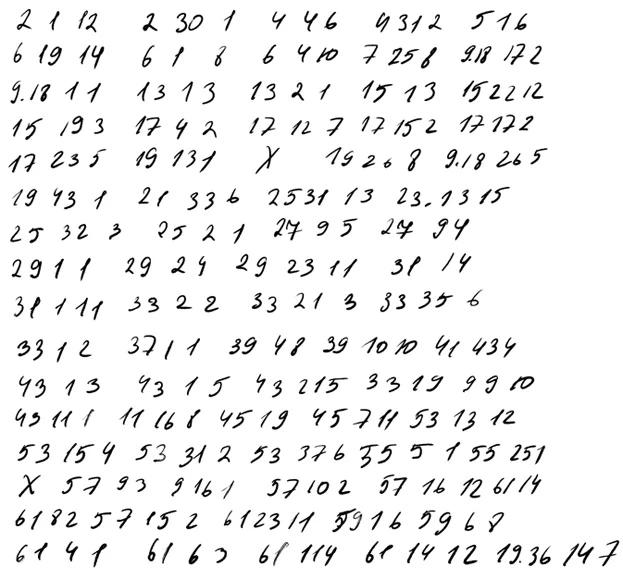 2 1 12 2 30 1 4 4 6 4312 516
6 19 14 6 1 8 6 4 10 7 258 9.18 172
9.18 11 13 13 13 2 1 15 13 152212
15 193 17 4 2 17 12 7 17 152 17172
17 235 19 131 X 19 26 8 9.18 265
19 43 1 21 33 6 2531 13 23.1315
25 32 3 25 2 1 27 9 5 27 94
2911 29 24 29 23 11 31 14
31 111 33 22 33 21 3 33 35 6
3312 3711 39 48 39 1010 41 434
43 13 43 15 43 215 33 19 9910
43 111 11168 4519 45711 53 13 12
53 154 53 312 53 376 35 5 1 55 251
X 57 93 9161 57102 57 16 12 6114
6182 57 152 6123 11 5916 59 6 8
61 41 61 63 61 114 61 14 12 19.36 147